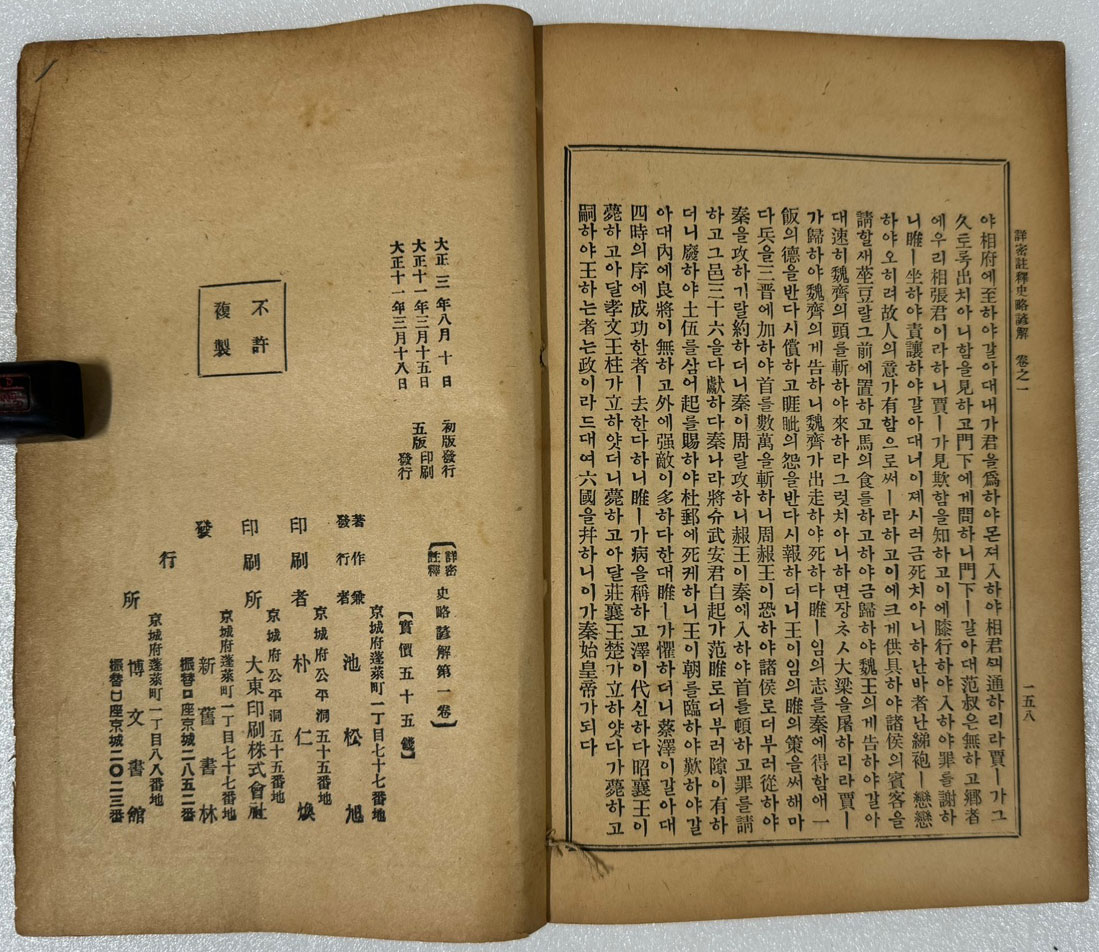 詳密註釋史略諺解 卷之一
一五八
야相府에至하야갈아대내가君을爲하야몬져入하야相君의通하리라賈ㅣ가그
久토록出치아니함을見하고門下에게問하니門下ㅣ갈아대范叔은無하고鄕者
에우리相張君이라하니賈ㅣ가見欺함을知하고이에膝行하야入하야罪를謝하
니睢ㅣ坐하야責讓하야갈아대너이졔시러금死치아니하난바者난綈袍ㅣ戀戀
하야오히려故人의意가有함으로써ㅣ라하고이에크게供具하야諸侯의賓客을
請할새莝豆랄그前에置하고馬의食를하고하야금歸하야魏王의게告하야갈아
대速히魏齊의頭를斬하야來하라그럿치아니하면장ᄎᆺ大梁을屠하리라賈ㅣ
가歸하야魏齊의게告하니魏齊가出走하야死하다睢ㅣ임의志를秦에得함애一
飯의德을반다시償하고睚眦의怨을반다시報하더니王이임의睢의策을써해마
다兵을三晋에加하야首를數萬을斬하니周赧王이恐하야諸侯로더부러從하야
秦을攻하기랄約하더니秦이周랄攻하니赧王이秦애入하야首를頓하고罪를請
하고그邑三十六을다獻하다秦나라將슈武安君白起가范睢로더부러隙이有하
더니廢하야土伍를삼어起를賜하야杜郵에死케하니王이朝를臨하야歎하야갈
아대內에良將이無하고外에强敵이多하다한대睢ㅣ가懼하더니蔡澤이갈아대
四時의序에成功한者ㅣ去한다하니睢ㅣ가病을稱하고澤이代신하다昭襄王이
薨하고아달孝文王柱가立하얏더니薨하고아달莊襄王楚가立하얏다가薨하고
嗣하야王하는者는政이라드대여六國을幷하니이가秦始皇帝가되다
大正三年八月十日 初版發行
大正十一年三月十五日 五版印刷
大正十一年三月十八日 發行
不許複製
【詳密註釋 史略諺解第一卷】
【實價五十五錢】
京城府蓬萊町一丁目七十七番地
著作兼發行者 池松旭
京城府公平洞五十五番地
印刷者 朴仁煥
京城府公平洞五十五番地
印刷所 大東印刷株式會社
京城府蓬萊町一丁目七十七番地
發行所 新舊書林
振替口座京城二八五二番
京城府蓬萊町一丁目八八番地
博文書館
振替口座京城二〇二三番